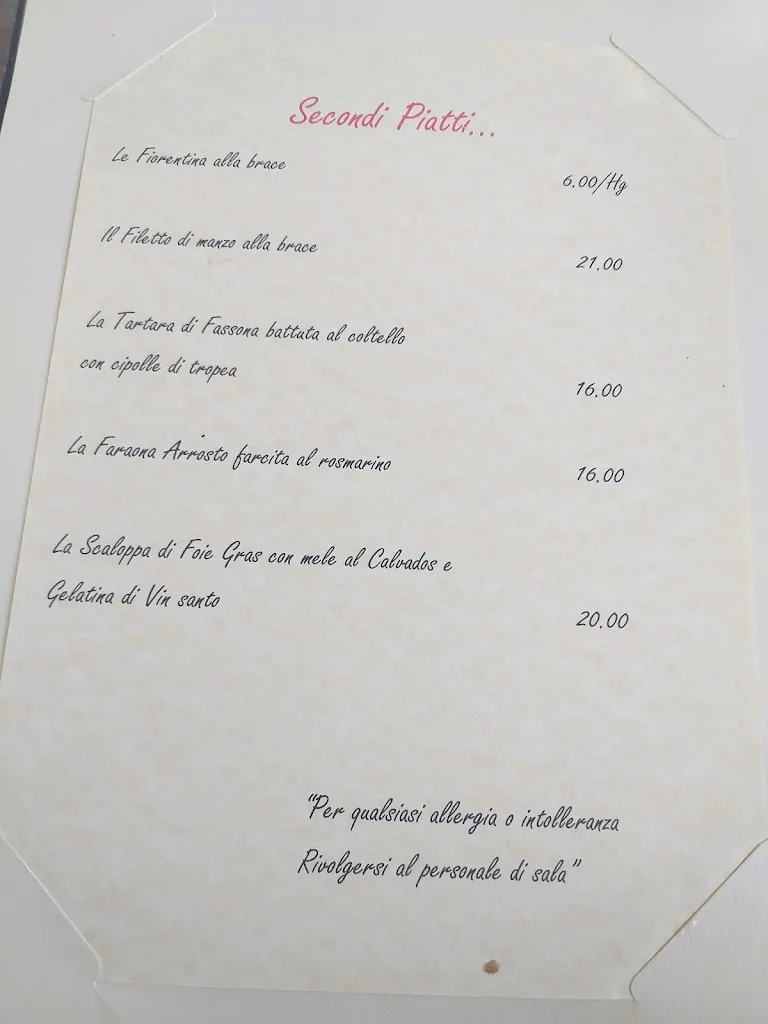 Secondi Piatti...
Le Fiorentina alla brace
6.00/Hg
Il Filetto di manzo alla brace
21.00
La Tartara di Fassona battuta al coltello
con cipolle di tropea
16.00
La Faraona Arrosto farcita al rosmarino
16.00
La Scaloppa di Foie Gras con mele al Calvados e
Gelatina di Vin santo
20.00
"Per qualsiasi allergia o intolleranza
Rivolgersi al personale di sala"